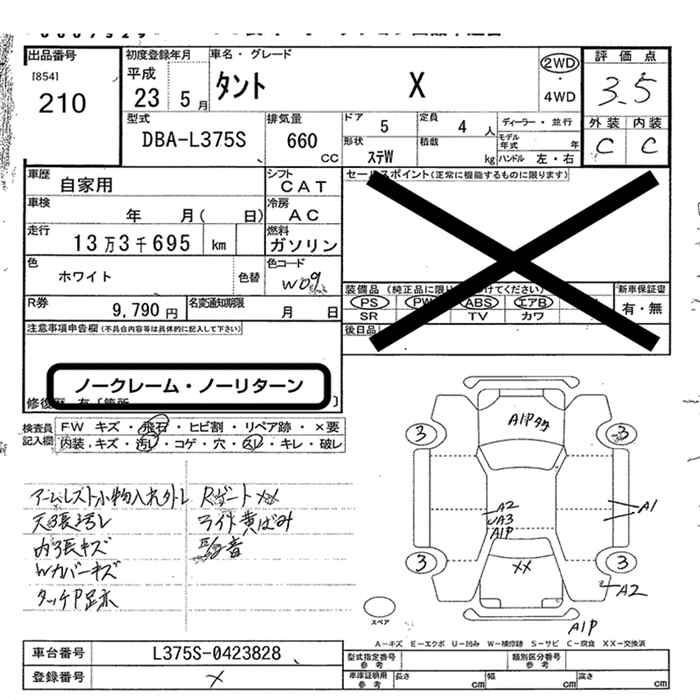 出品番号
[854]
210
初度登録年月
平成
23 5月
車名・グレード
タント X
2WD
4WD
評価点
3.5
外装 内装
C C
型式
DBA-L375S
排気量
660
CC
ドア
5
定員
4 人
ディーラー・並行
モデル年式 年
形状
ステW
積載
kg
ハンドル 左・右
車歴
自家用
シフト
CAT
セールスポイント(正常に機能するものに限ります)
車検
年 月( 日)
冷房
AC
走行
13万3千695 km
燃料
ガソリン
色
ホワイト
色替
色コード
W09
装備品(純正品に限り
けてください)
新車保証書
有・無
PS PW ABS エアB
SR TV カワ
R券
9,790円
名変通知期限
月 日
後日品
注意事項申告欄(不具合内容等は具体的に記入して下さい)
ノークレーム・ノーリターン
検査員
記入欄
FW キズ・飛石・ヒビ割・リペア跡・×要
内装.キズ・汚れ・コゲ・穴・スレ・キレ・破レ
アームレスト小物入れ外レ
天張汚レ
内張キズ
Wカバーキズ
タッチP足示
Rゲート××
ライト黄ばみ
A1P
3
3
A2
A3
A1P
A1
××
3
3
A2
スペア
A1P
A-キズ E-エクボ U-凹み W-補修跡 S-サビ C-腐食 XX-交換済
車台番号
L375S-0423828
型式指定番号
参考
類別区分番号
参考
登録番号
×
車庫証明用
参考
長さ cm
幅 cm
高さ cm